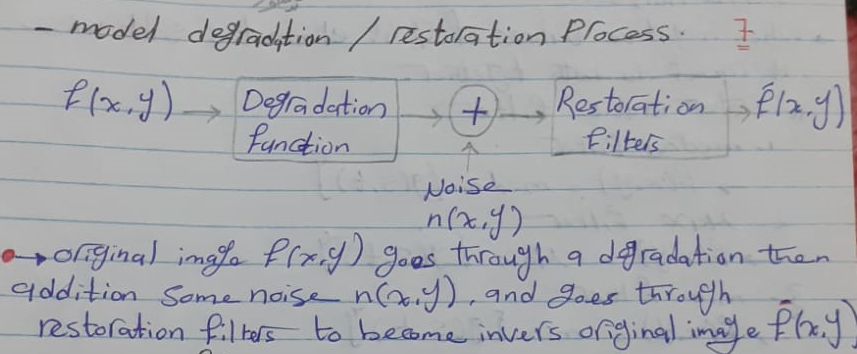 - model degradation / restoration Process. 7
f(x,y) → Degradation function → + → Restoration filters → f̂(x,y)
Noise
n(x,y)
→ original image f(x,y) goes through a degradation then
addition some noise n(x,y), and goes through
restoration filters to become invers original image f̂(x,y)